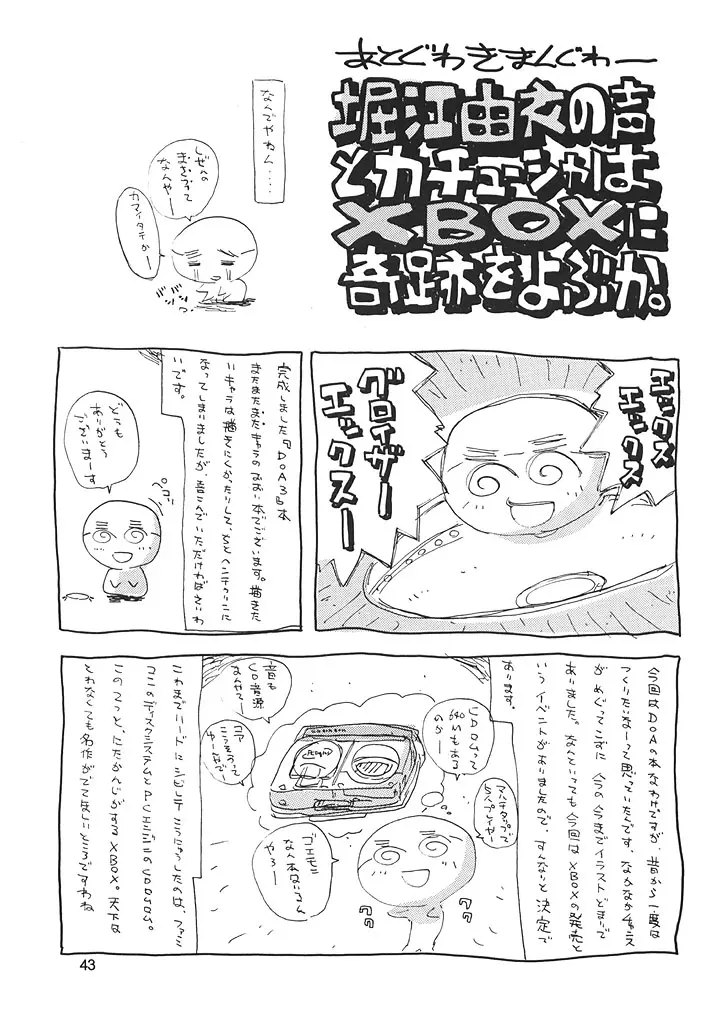 あとぐわきまんぐわー
堀江由衣の声
とカチューシャは
XBOXに
奇跡をよぶか。
なんでやねん....
しぜんの
まきずって
なんやー
カマイタチかー
エックス
エックス
エックス
グロイザー
エックスー
完成しました『DOA3』本
またまたまたキャラのふるい本でございます。描きた
いキャラは描きにくかったりして、ちとヘンテコリンに
なってしまいましたが、喜こんでいただければさいわ
いです。
どうも
ありがとう
ございまーす
ペコッ
今回はDOAの本なわけですが、昔から一度は
つくりたいなーって思っていたんです。なかなかチャンス
がめぐってこずに今の今までイラストどまりで
ありました。なんといっても今回はXBOXの発売と
いうイベントがありましたので、すんなりと決定で
あります。
マルチタップで
5人プレイヤー
CDROMって
540Mもある
のかー
音も
CD音源
なんやでー
コア
こうそうって
ゆーなよ
ゴエモン
なん本はいるん
やろー
これまでハードにシビレてこうにゅうしたのは、ファミ
コンのディスクシステムとPCエンジンのCDロムロム。
このてつと、にたかんじがするXBOX。天下は
とれなくても名作がでてほしいところですわね
43